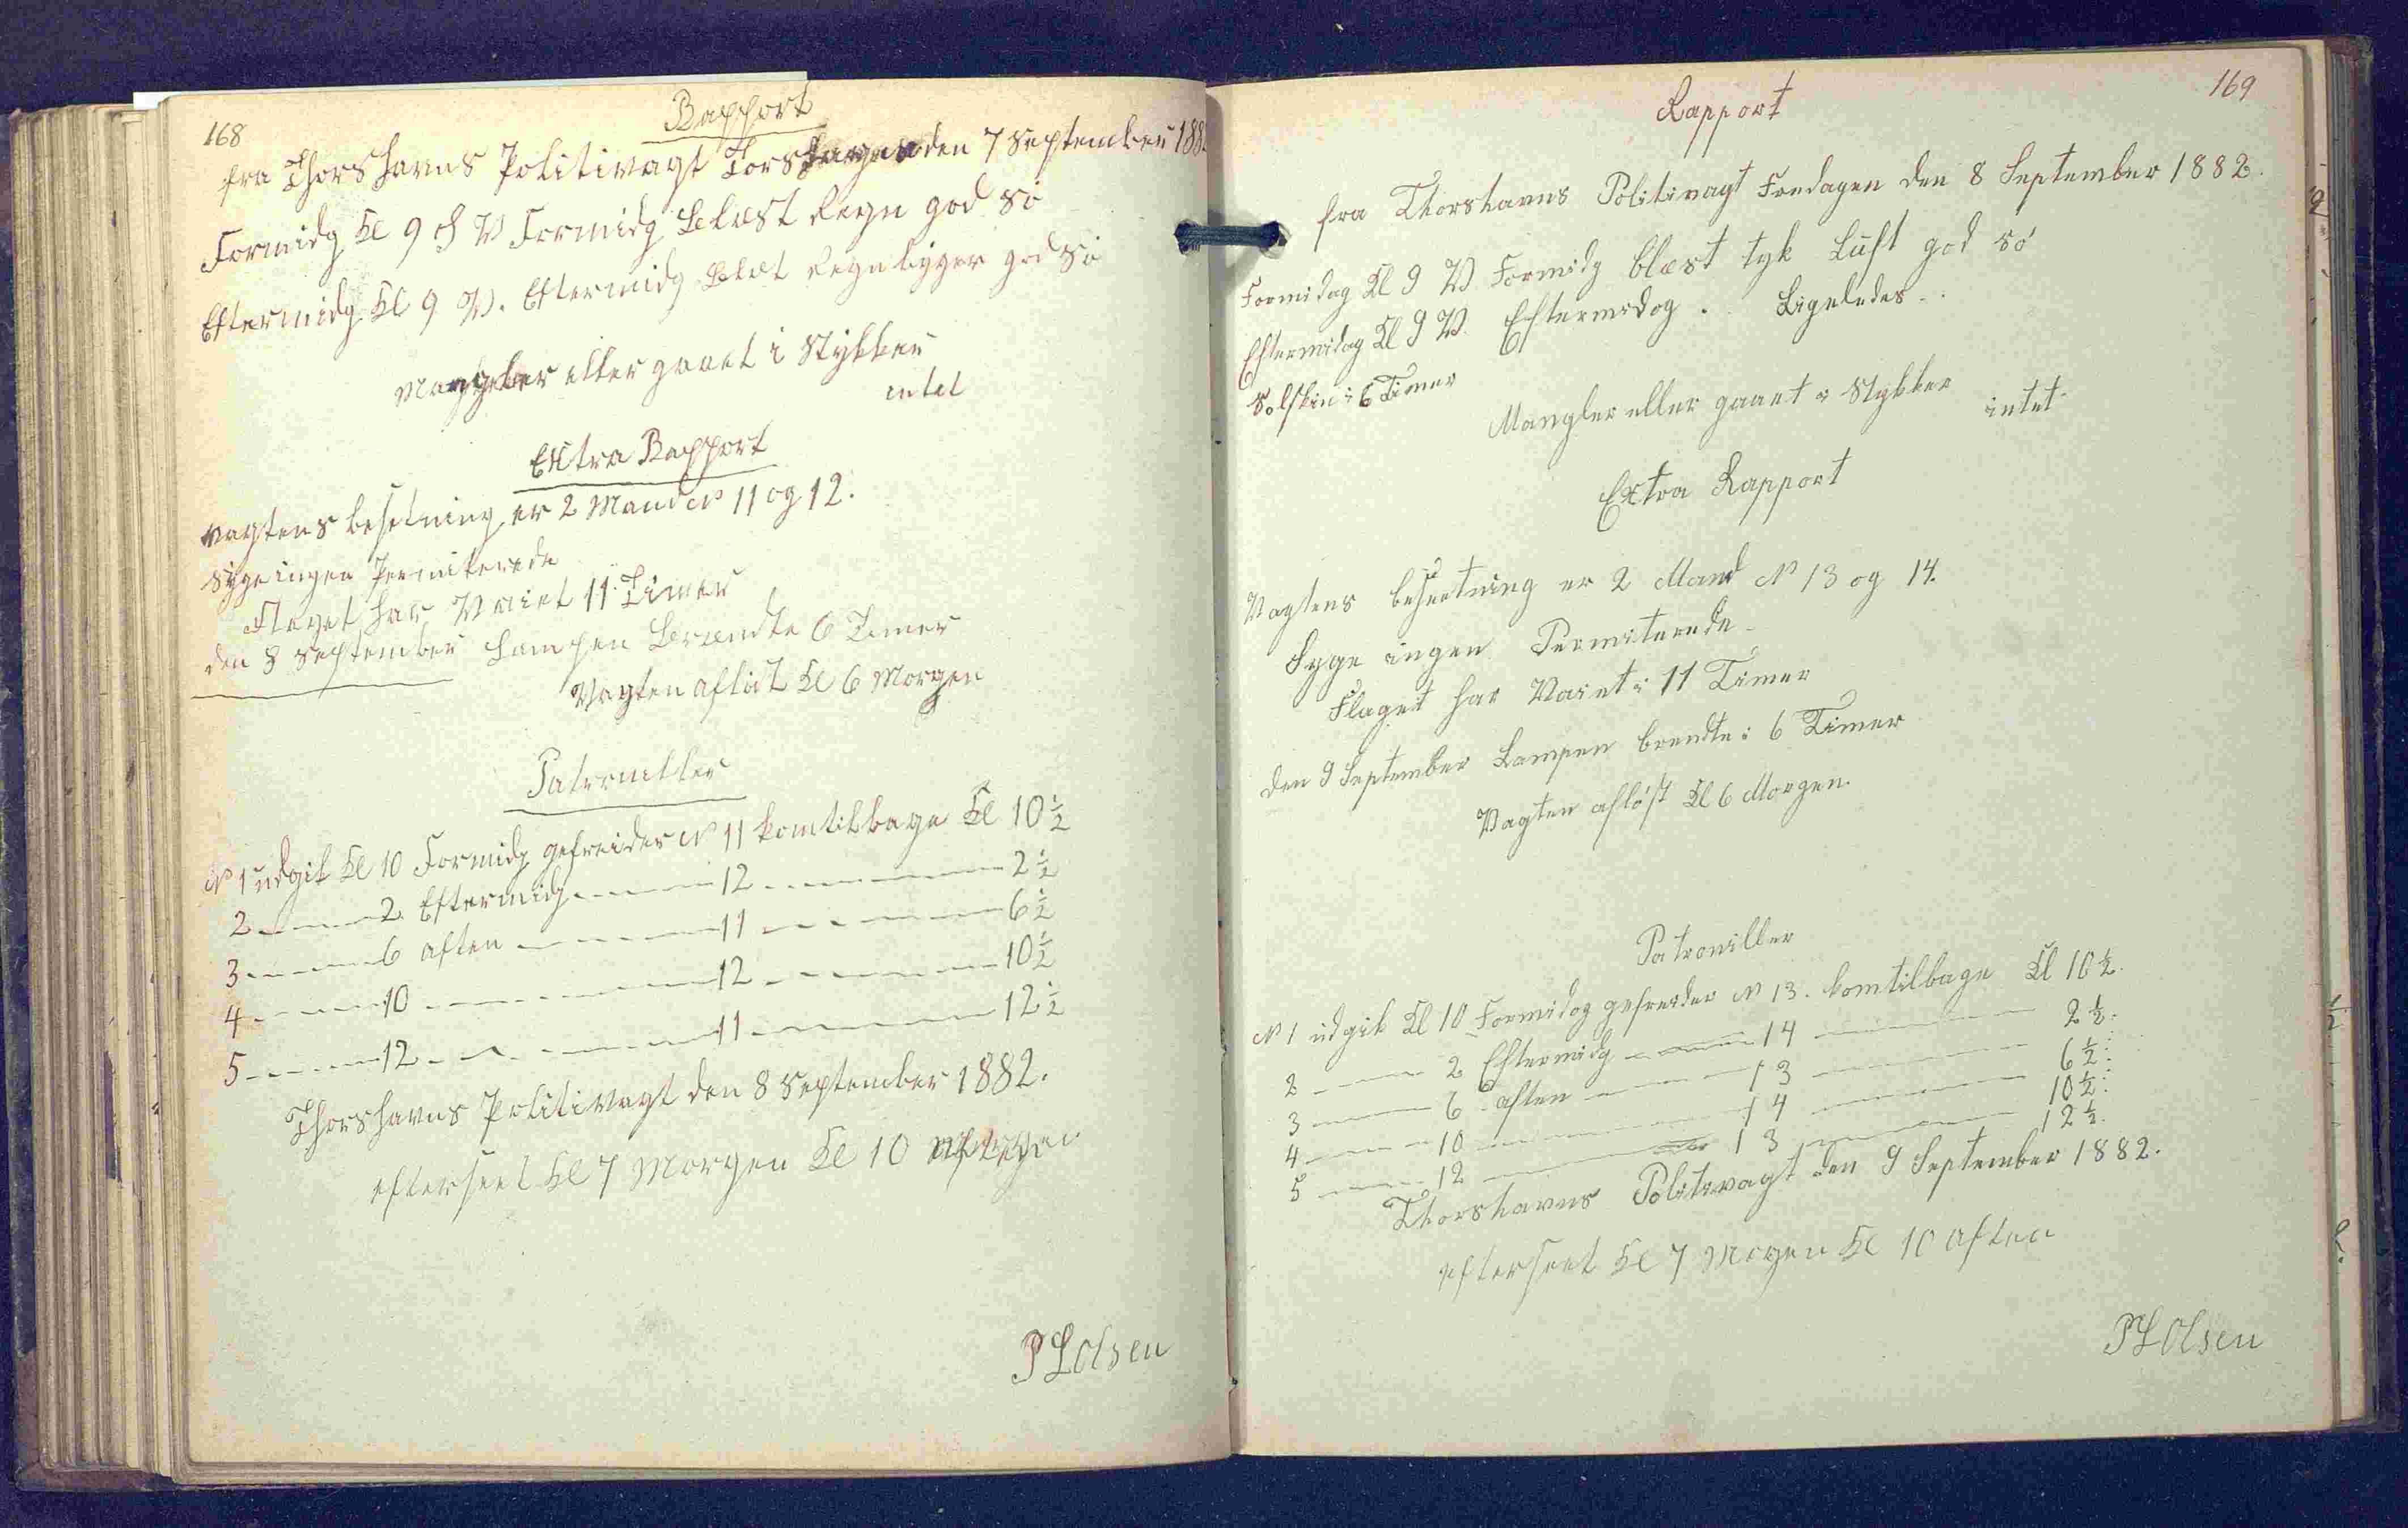 168
Rapport
fra Thorshavns Politivagt Torsdagen den 7 September 188
Formidg Kl 9 V Formidg Blæst Regn god Sö
Eftermidg Kl 9 V. Eftermidg Blæt Regn byger god Sö
Mangler eller gaaet i Stykker
intet
Extra Rapport
Vagtens besetning er 2 Mand N 11 og 12.
Syge ingen Permiterede
Flaget har Vaiet 11 Timer
den 8 September Lampen Brændte 6 Timer
Vagten aflöst Kl 6 Morgen
Patrouller
N 1 udgik Kl 10 Formidg gefreider N 11 komtilbage Kl 10 1/2
2 — 2 Eftermidg — 12 — 2 1/2
3 — 6 aften — 11 — 6 1/2
4 — 10 — 12 — 10 1/2
5 — 12 — 11 — 12 1/2
Thorshavns Politivagt den 8 September 1882.
efterseet Kl 7 Morgen Kl 10
P L Olsen
169
Rapport
fra Thorshavns Politivagt Fredagen den 8 September 1882.
Formidag Kl 9 V Formidg blæst tyk Luft god Sö
Eftermidag Kl 9 V. Eftermidag. Ligeledes..
Solskin i 6 Timer
Mangler eller gaaet i Stykker
intet
Extra Rapport
Vagtens besætning er 2 Mand N 13 og 14.
Syge ingen Permiterede
Flaget har Vaiet i 11 Timer
den 9 September Lampen brendte i 6 Timer
Vagten aflöst Kl 6 Morgen.
Patrouiller
N 1 udgik Kl 10 Formidag gefreider N 13. komtilbage Kl 10 1/2.
2 — 2 Eftermidg — 14 — 2 1/2.
3 — 6 aften — 13 — 6 1/2:
4 — 10 — 14 — 10 1/2:
5 — 12 — 13 — 12 1/2.
Thorshavns Politivagt den 9 September 1882.
efterseet Kl 7 Mogen Kl 10 Aften
P L Olsen